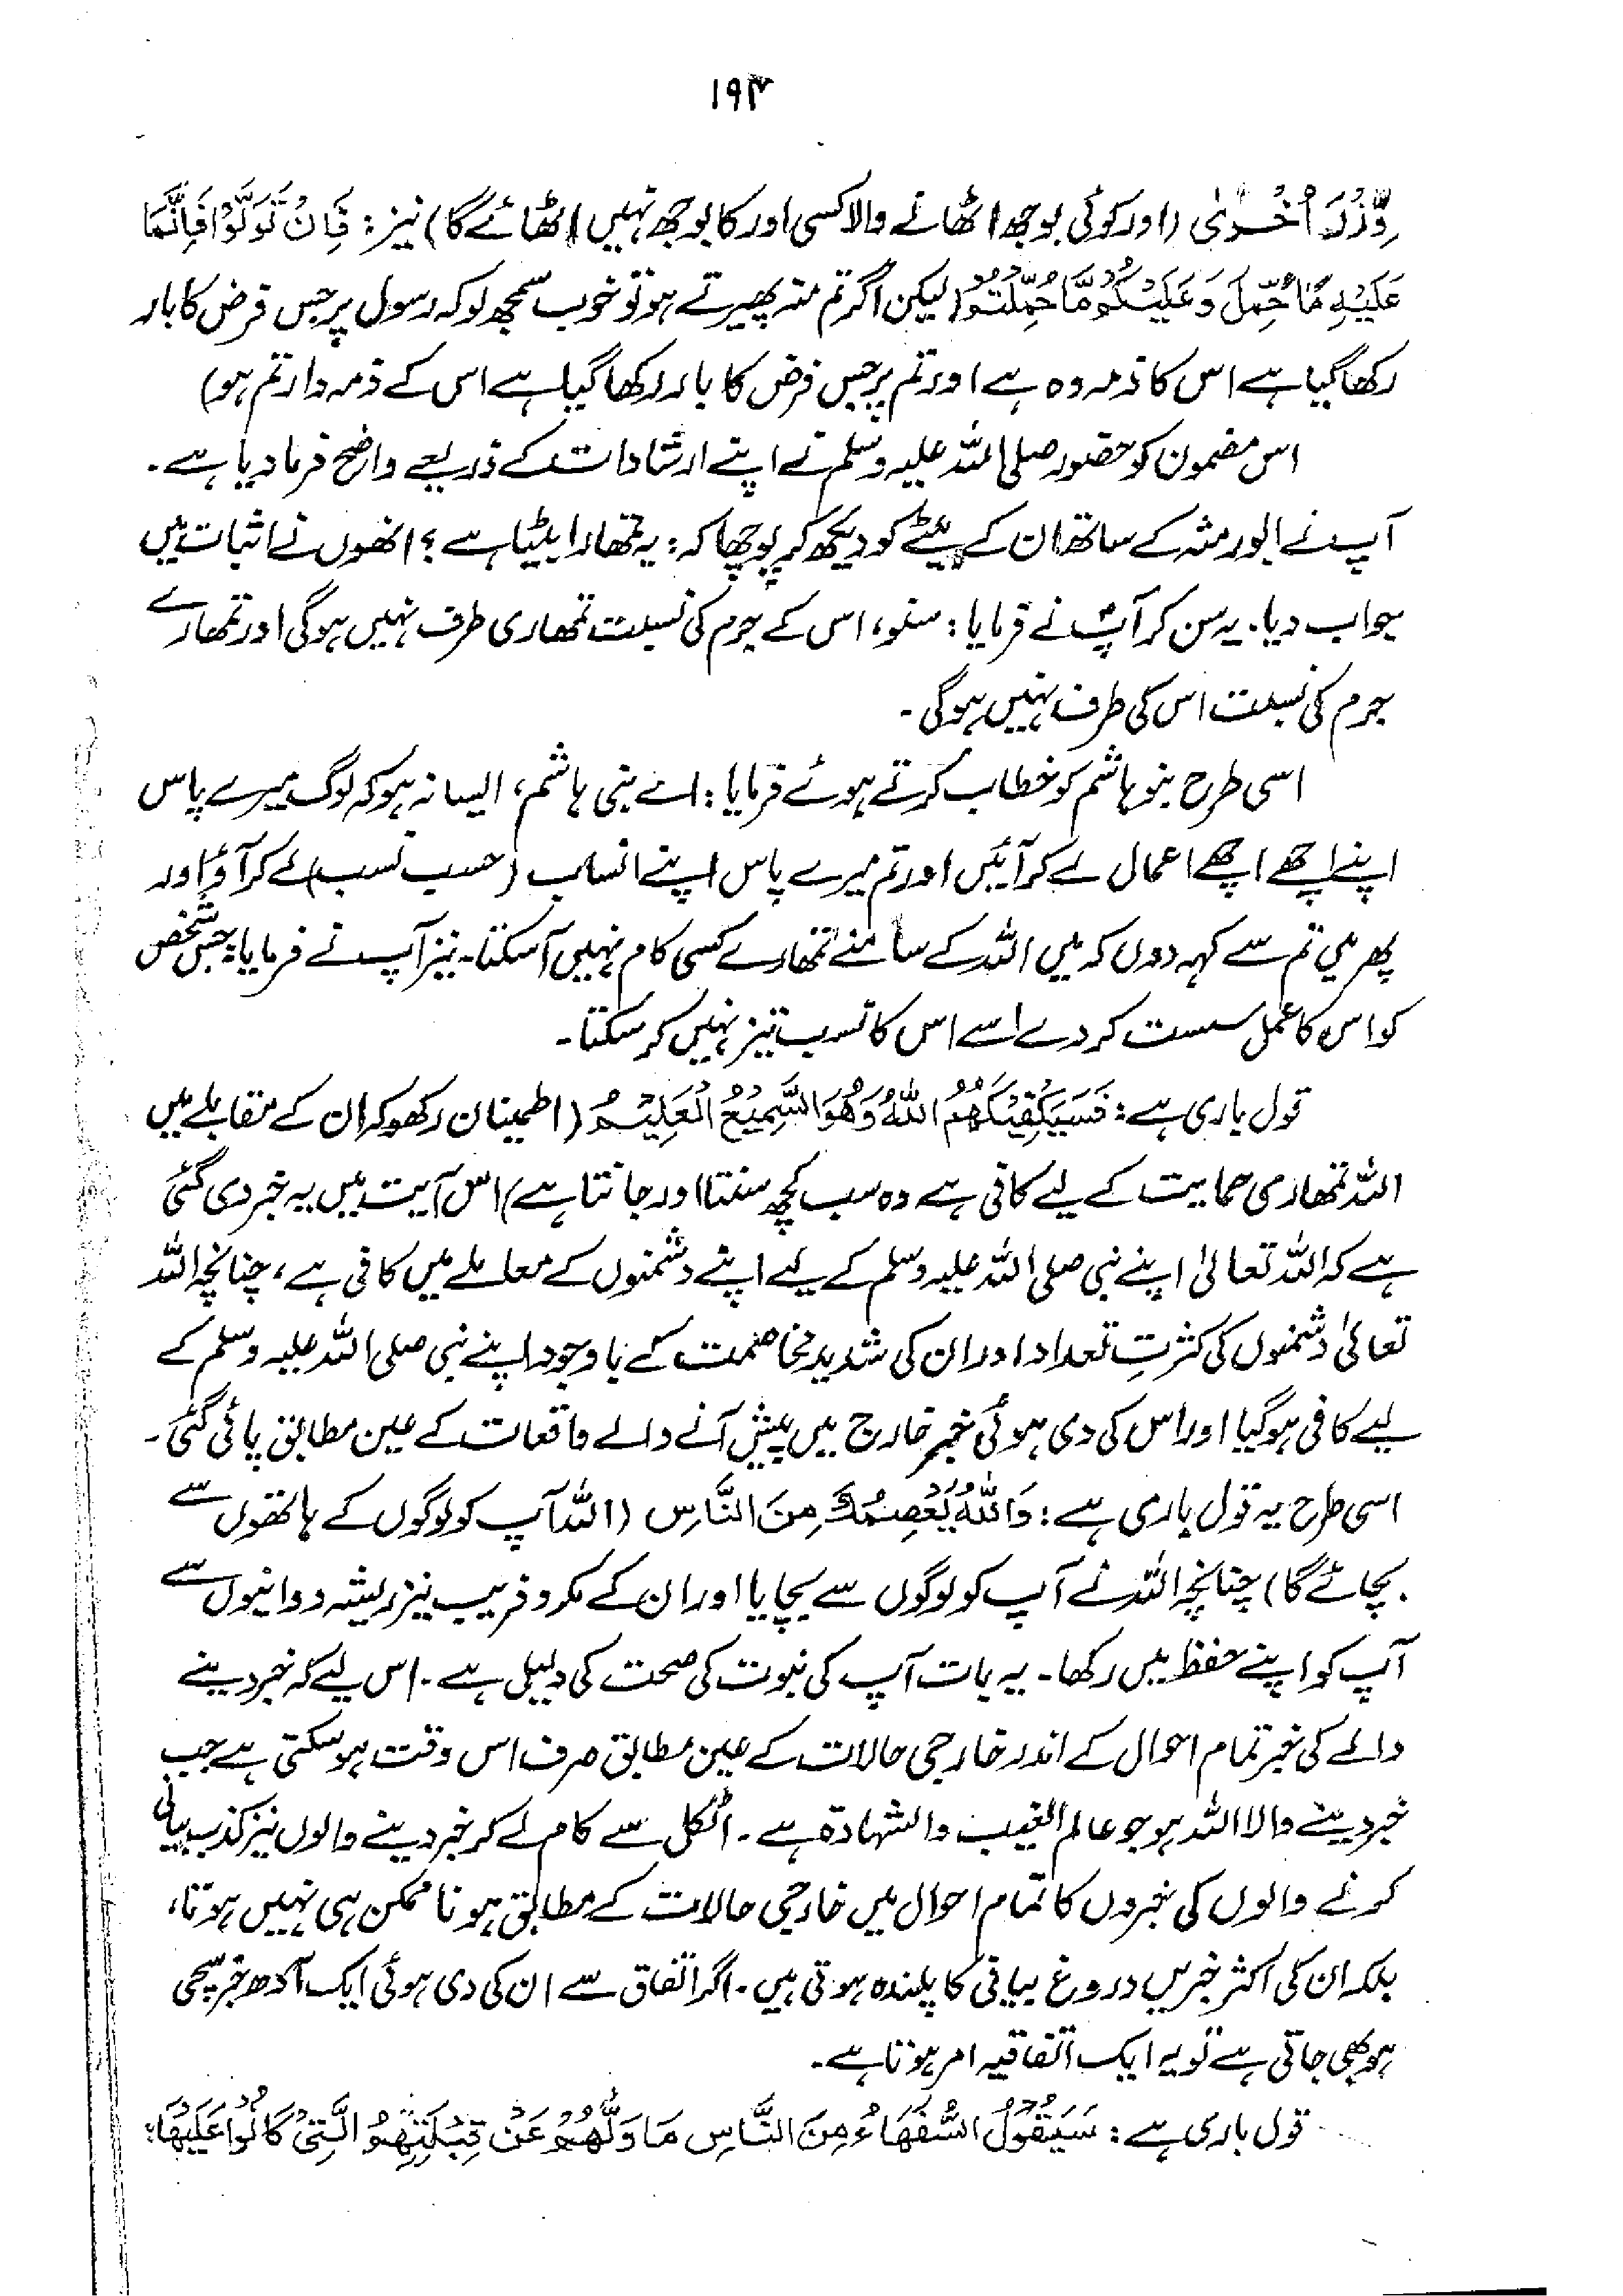 ۱۹۴
وِّزْرَ اُخْرٰى (اور کوئی بوجھ اٹھانے والا کسی اور کا بوجھ نہیں اٹھائے گا) نیز: فَاِنْ تَوَلَّوْا فَاِنَّمَا
عَلَيْهِ مَا حُمِّلَ وَعَلَيْكُمْ مَّا حُمِّلْتُمْ (لیکن اگر تم منہ پھیرتے ہو تو خوب سمجھ لو کہ رسول پر جس فرض کا بار
رکھا گیا ہے اس کا ذمہ وہ ہے اور تم پر جس فرض کا بار رکھا گیا ہے اس کے ذمہ دار تم ہو)
اس مضمون کو حضور صلی اللہ علیہ وسلم نے اپنے ارشادات کے ذریعے واضح فرما دیا ہے۔
آپ نے ابورمثہ کے ساتھ ان کے بیٹے کو دیکھ کر پوچھا کہ: یہ تمھارا بیٹا ہے؟ انھوں نے اثبات میں
جواب دیا۔ یہ سن کر آپؐ نے فرمایا: سنو، اس کے جرم کی نسبت تمھاری طرف نہیں ہوگی اور تمھارے
جرم کی نسبت اس کی طرف نہیں ہوگی۔
اسی طرح بنو ہاشم کو خطاب کرتے ہوئے فرمایا: اے بنی ہاشم، ایسا نہ ہو کہ لوگ میرے پاس
اپنے اچھے اچھے اعمال لے کر آئیں اور تم میرے پاس اپنے انساب (حسب نسب) لے کر آؤ اور
پھر میں تم سے کہہ دوں کہ میں اللہ کے سامنے تمھارے کسی کام نہیں آسکتا۔ نیز آپ نے فرمایا: جس شخص
کو اس کا عمل سست کر دے اسے اس کا نسب تیز نہیں کر سکتا۔
قول باری ہے: فَسَيَكْفِيْكَهُمُ اللّٰهُ وَهُوَ السَّمِيْعُ الْعَلِيْمُ (اطمینان رکھو کہ ان کے مقابلے میں
اللہ تمھاری حمایت کے لیے کافی ہے وہ سب کچھ سنتا اور جانتا ہے) اس آیت میں یہ خبر دی گئی
ہے کہ اللہ تعالیٰ اپنے نبی صلی اللہ علیہ وسلم کے لیے اپنے دشمنوں کے معاملے میں کافی ہے، چنانچہ اللہ
تعالیٰ دشمنوں کی کثرتِ تعداد اور ان کی شدید مخاصمت کے باوجود اپنے نبی صلی اللہ علیہ وسلم کے
لیے کافی ہوگیا اور اس کی دی ہوئی خبر خارج میں پیش آنے والے واقعات کے عین مطابق پائی گئی۔
اسی طرح یہ قول باری ہے: وَاللّٰهُ يَعْصِمُكَ مِنَ النَّاسِ (اللہ آپ کو لوگوں کے ہاتھوں سے
بچائے گا) چنانچہ اللہ نے آپ کو لوگوں سے بچایا اور ان کے مکر و فریب نیز ریشہ دوانیوں سے
آپ کو اپنے حفظ میں رکھا۔ یہ بات آپ کی نبوت کی صحت کی دلیل ہے۔ اس لیے کہ خبر دینے
والے کی خبر تمام احوال کے اندر خارجی حالات کے عین مطابق صرف اس وقت ہوسکتی ہے جب
خبر دینے والا اللہ ہو جو عالم الغیب والشہادۃ ہے۔ اٹکل سے کام لے کر خبر دینے والوں نیز کذب بیانی
کرنے والوں کی خبروں کا تمام احوال میں خارجی حالات کے مطابق ہونا ممکن ہی نہیں ہوتا،
بلکہ ان کی اکثر خبریں دروغ بیانی کا پلندہ ہوتی ہیں۔ اگر اتفاق سے ان کی دی ہوئی ایک آدھ خبر سچی
ہو بھی جاتی ہے تو یہ ایک اتفاقیہ امر ہوتا ہے۔
قول باری ہے: سَيَقُوْلُ السُّفَهَاءُ مِنَ النَّاسِ مَا وَلّٰهُمْ عَنْ قِبْلَتِهِمُ الَّتِيْ كَانُوْا عَلَيْهَا؛